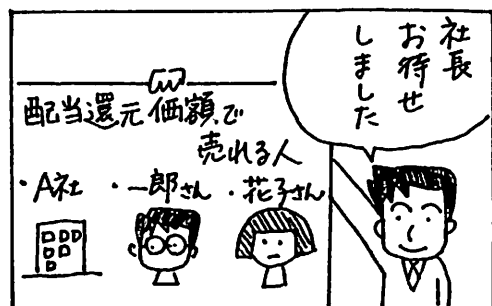 社長
お待せ
しました
配当還元価額で
売れる人
・A社 ・一郎さん ・花子さん